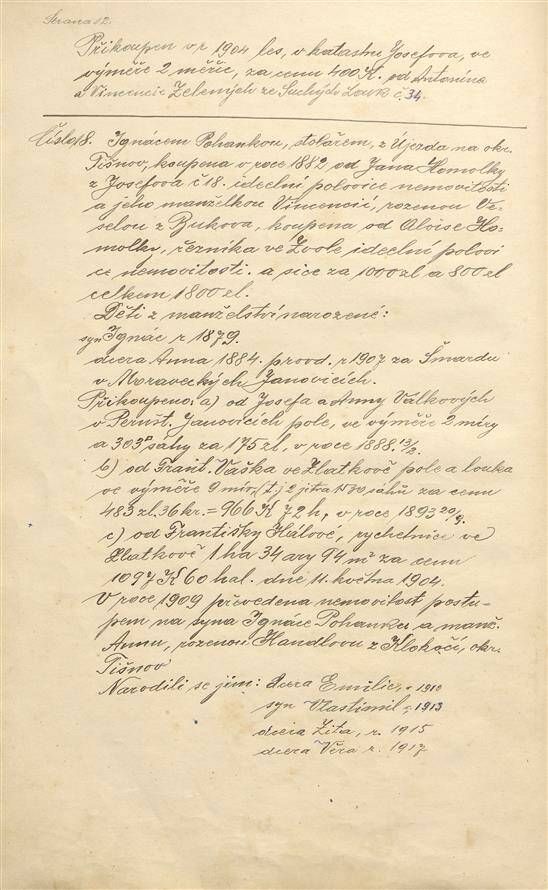 Strana 12.
Přikoupen v r 1904 les, v katastru Josefova, ve
výměře 2 měřic, za cenu 400 K. od Antonína
a Vincencie Zelených ze Suchých Louk č. 34.
Číslo 18. Ignácem Pohankou, stolářem, z Újezda na okr.
Tišnov, koupena v roce 1882 od Jana Homolky
z Josefova č 18. ideelní polovice nemovitosti
a jeho manželkou Vincencií, rozenou Ve-
selou z Bukova, koupena od Aloise Ho-
molky, řezníka ve Zvole ideelní polovi
ce nemovitosti. a sice za 1000 zl a 800 zl
celkem 1800 zl.
Děti z manželství narozené:
syn Ignác r 1879.
dcera Anna 1884. provd. r 1907 za Šmardu
v Moraveckých Janovicích.
Přikoupeno: a) od Josefa a Anny Válkových
v Pernšt. Janovicích pole, ve výměře 2 míry
a 303□ sáhy za 175 zl, v roce 1888 13/2.
b) od Frant. Vaška ve Zlatkově pole a louka
ve výměře 9 mír, (t.j 2 jitra 1530 sáhů za cenu
483 zl. 36 kr. = 966 K 72 h, v roce 1893 20/9.
c) od Františky Hálové, rychetnice ve
Zlatkově 1 ha 34 ary 94 m² za cenu
1097 K 60 hal. dne 11. května 1904.
V roce 1909 převedena nemovitost postu-
pem na syna Ignáce Pohanku a manž.
Annu, rozenou Handlovu z Klokočí, okr.
Tišnov
Narodili se jim: dcera Emilie, r. 1910
syn Vlastimil r. 1913
dcera Zita, r. 1915
dcera Věra r. 1917